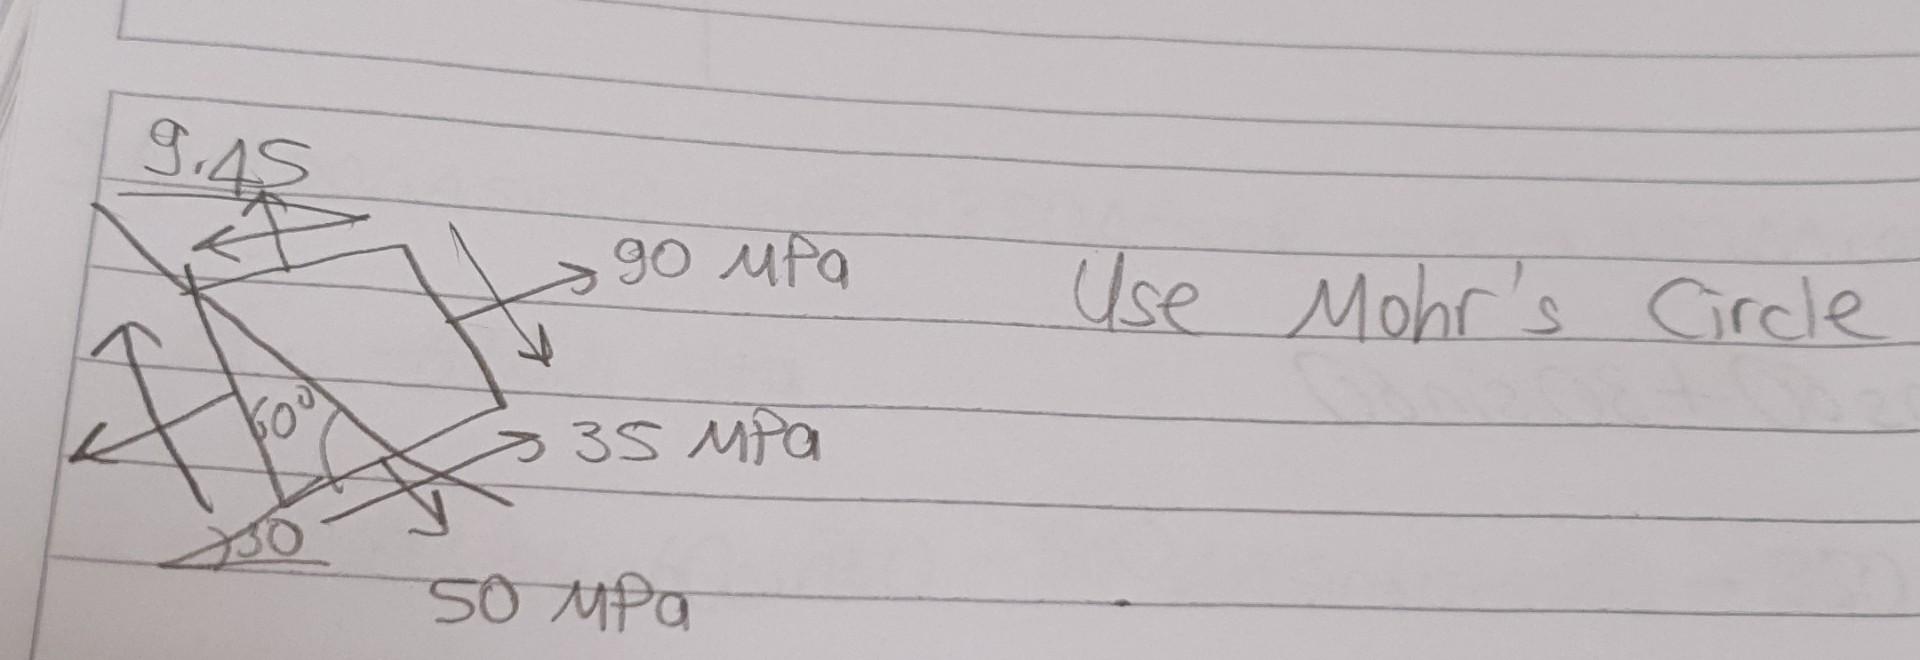 9.45
90 MPa
Use Mohr's Circle
60°
35 MPa
30
50 MPa